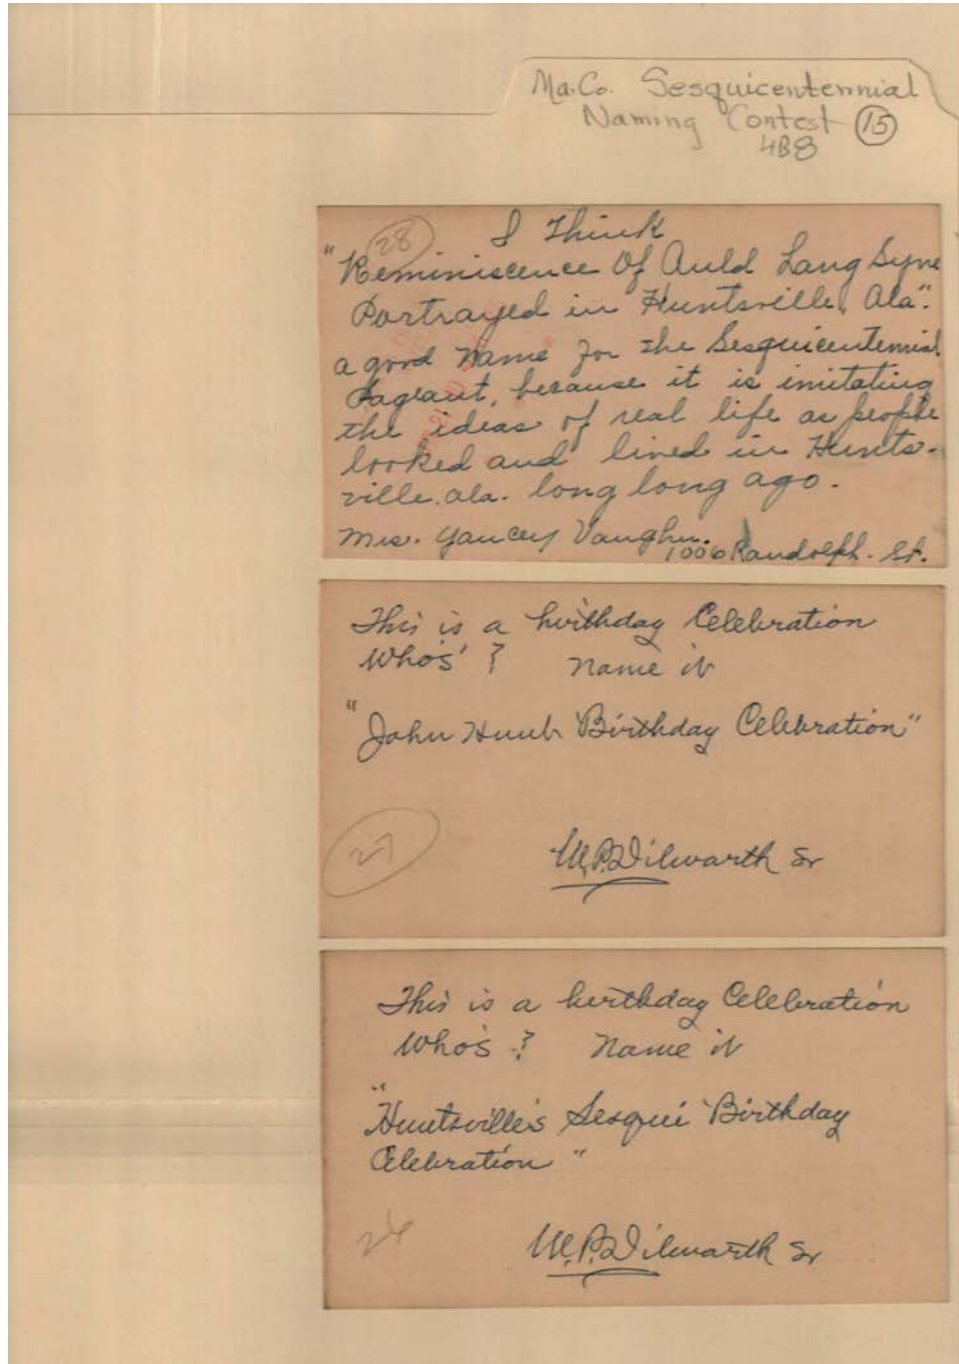 Ma.Co. Sesquicentennial
Naming Contest 15
4B8
28
I Think
"Reminiscence Of Auld Lang Syne
Portrayed in Huntsville, Ala".
a good name for the Sesquicentennial
Pageant, because it is imitating
the ideas of real life as people
looked and lived in Hunts-
ville. ala. long long ago.
Mrs. Yancey Vaughn.
1006 Randolph. St.
This is a birthday Celebration
Who's'? Name it
"John Hunt Birthday Celebration"
27
W.P. Dilworth Sr
This is a birthday Celebration
Who's? Name it
"Huntsville's Sesqui Birthday
Celebration"
26
W.P. Dilworth Sr